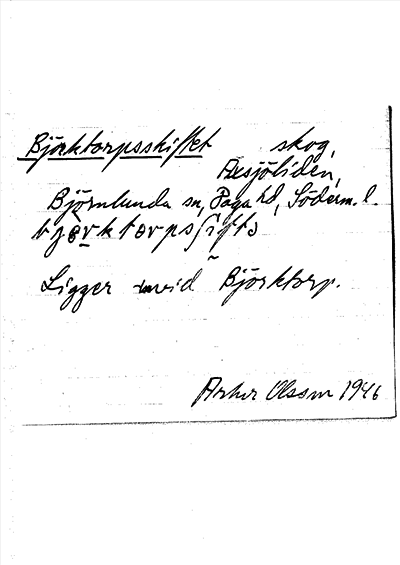 Björktorpsskiftet skog,
Axsjöliden,
Björnlunda sn, Daga hd, Söderm. l.
Ligger vid Björktorp.
Artur Olsson 1946